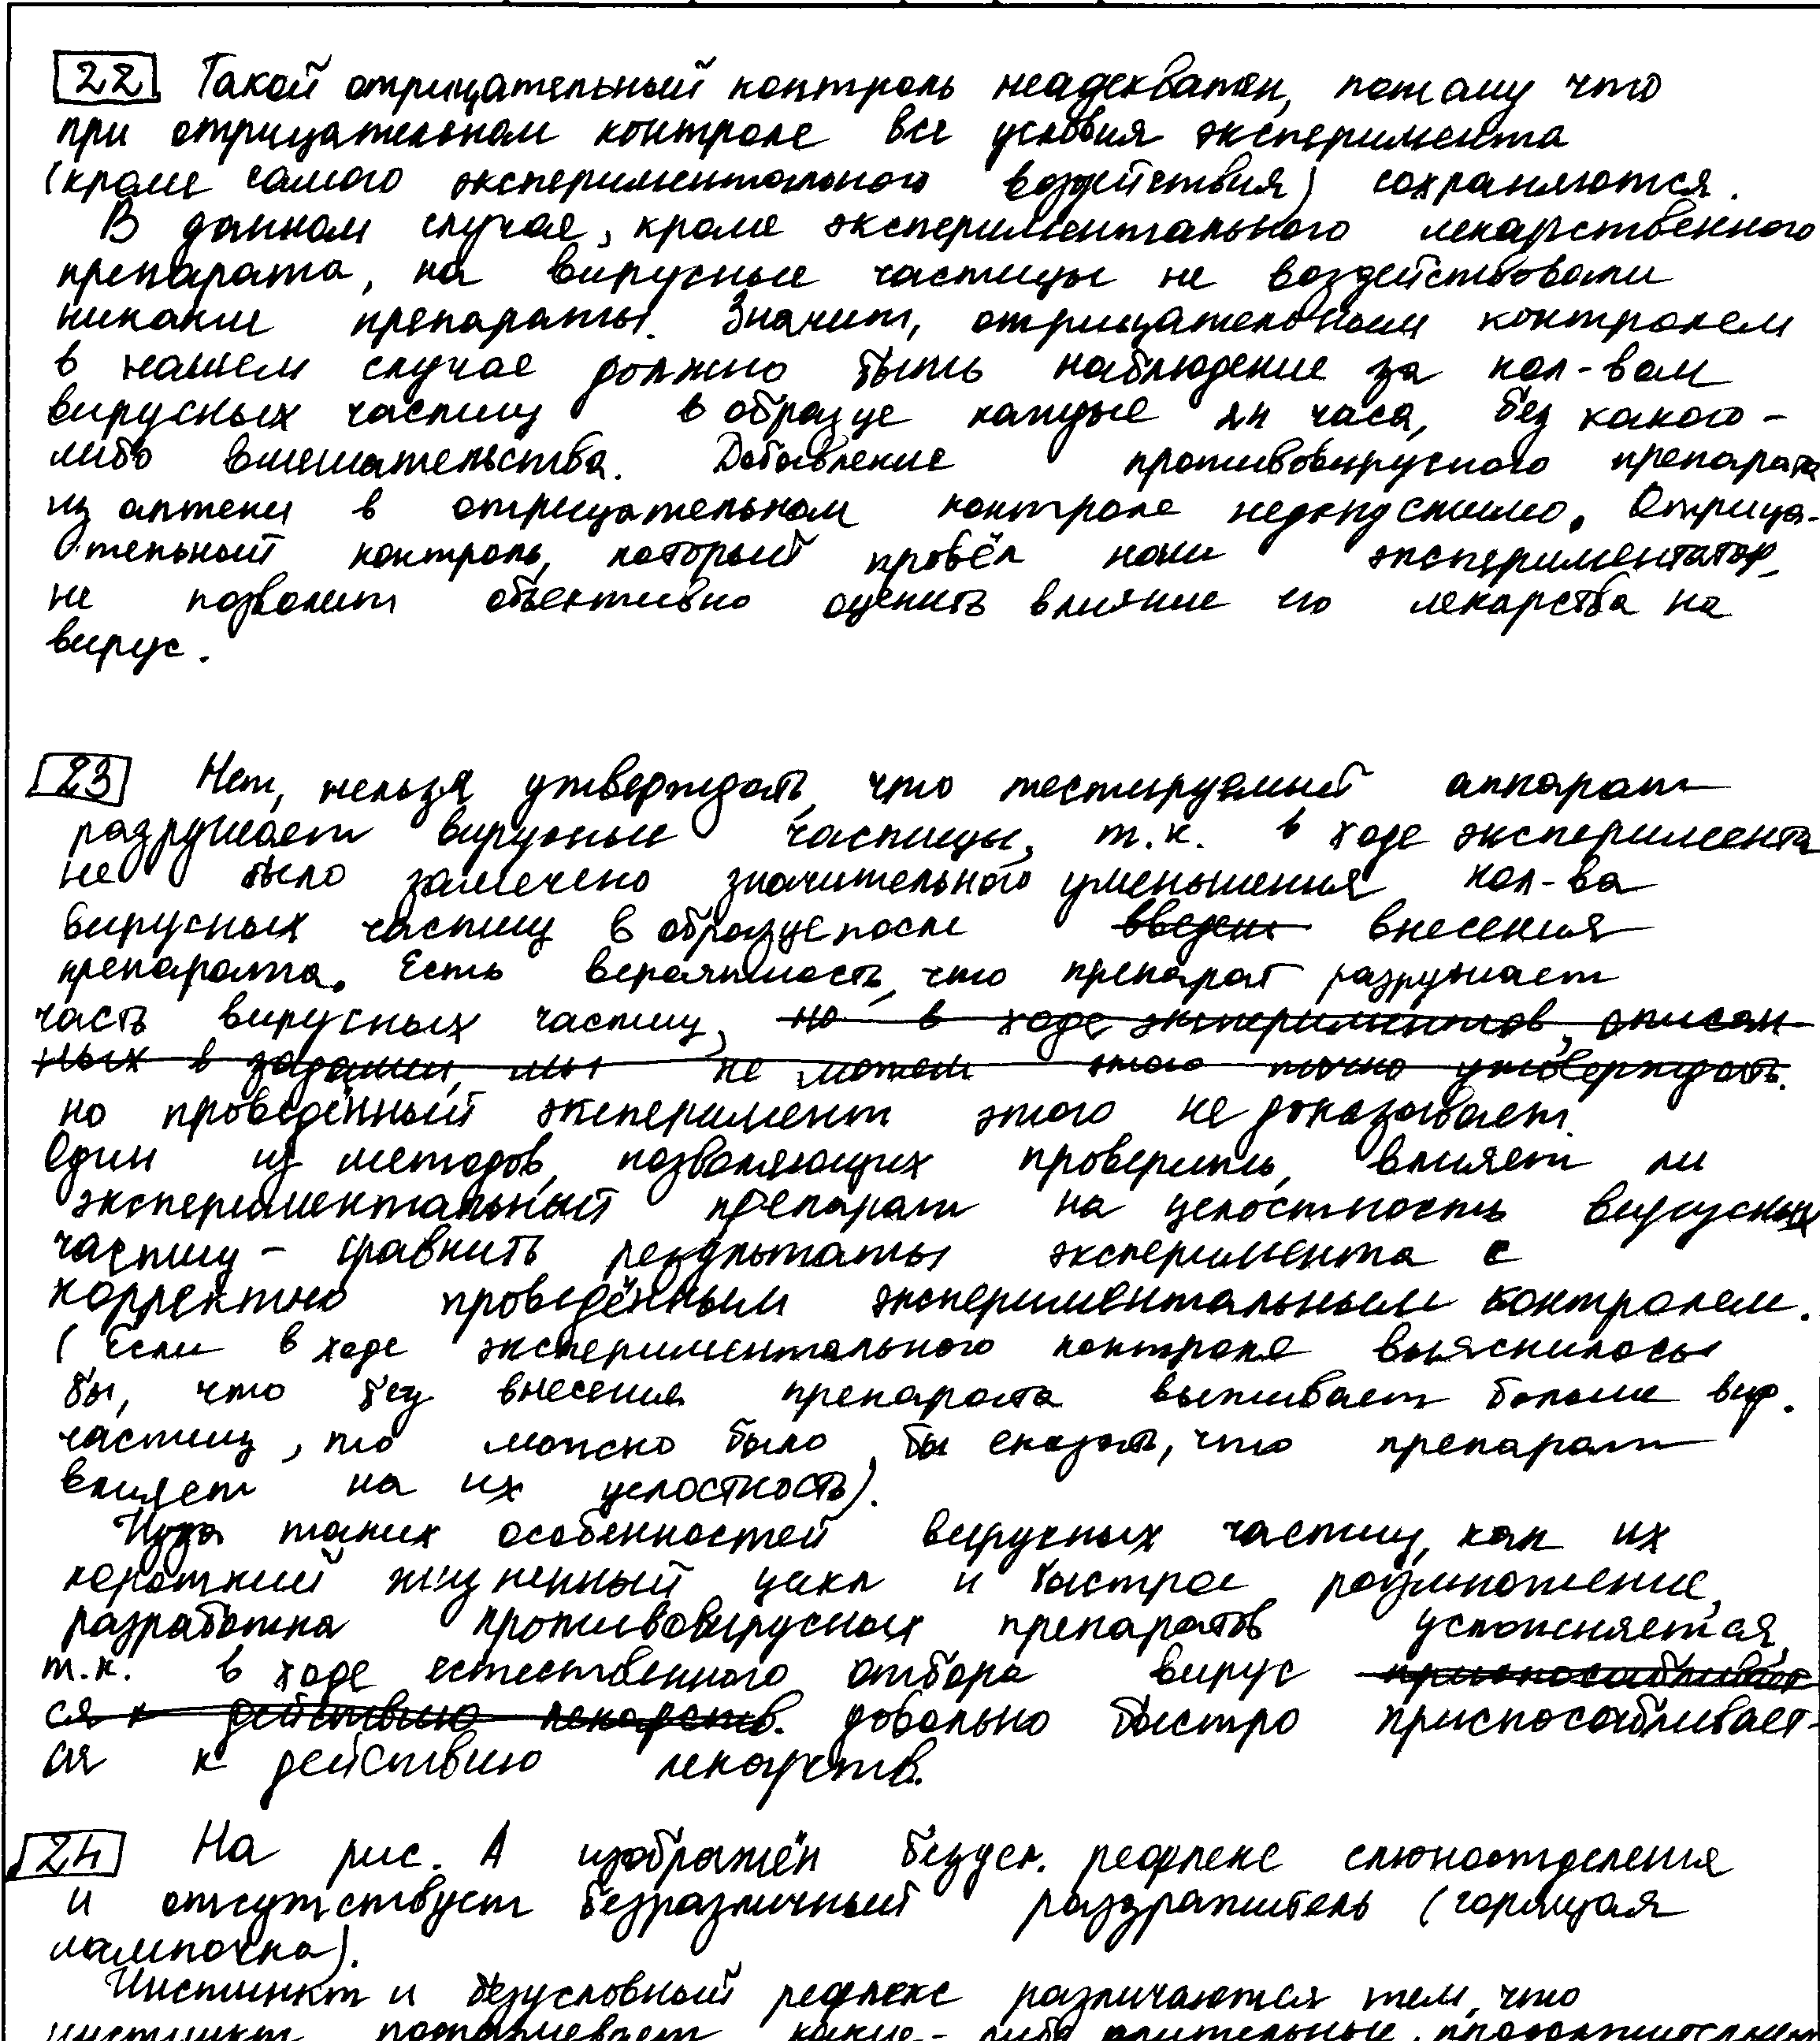 22 Такой отрицательный контроль неадекватен, потому что
при отрицательном контроле все условия эксперимента
(кроме самого экспериментального воздействия) сохраняются.
В данном случае, кроме экспериментального лекарственного
препарата, на вирусные частицы не воздействовали
никакие препараты. Значит, отрицательным контролем
в нашем случае должно быть наблюдение за кол-вом
вирусных частиц в образце каждые 24 часа, без какого-
либо вмешательства. Добавление противовирусного препарата
из аптеки в отрицательном контроле недопустимо. Отрица-
тельный контроль, который провёл наш экспериментатор,
не позволит объективно оценить влияние его лекарства на
вирус.
23 Нет, нельзя утверждать, что тестируемый аппарат
разрушает вирусные частицы, т.к. в ходе эксперимента
не было замечено значительного уменьшения кол-ва
вирусных частиц в образце после введени внесения
препарата. Есть вероятность, что препарат разрушает
часть вирусных частиц, но в ходе экспериментов, описан
ных в задании, мы не можем этого точно утверждать.
но проведённый эксперимент этого не доказывает.
Один из методов, позволяющих проверить, влияет ли
экспериментальный препарат на целостность вирусных
частиц - сравнить результаты эксперимента с
корректно проведённым экспериментальным контролем.
(Если в ходе экспериментального контроля выяснилось
бы, что без внесения препарата выживает больше вир.
частиц, то можно было бы сказать, что препарат
влияет на их целостность).
Из-за таких особенностей вирусных частиц, как их
короткий жизненный цикл и быстрое размножение,
разработка противовирусных препаратов усложняется,
т.к. в ходе естественного отбора вирус приспосабливает
ся к действию лекарств. довольно быстро приспосабливает-
ся к действию лекарств.
24 На рис. А изображён безусл. рефлекс слюноотделения
и отсутствует безразличный раздражитель (горящая
лампочка).
Инстинкт и безусловный рефлекс различаются тем, что
инстинкт какие-либо длительные,